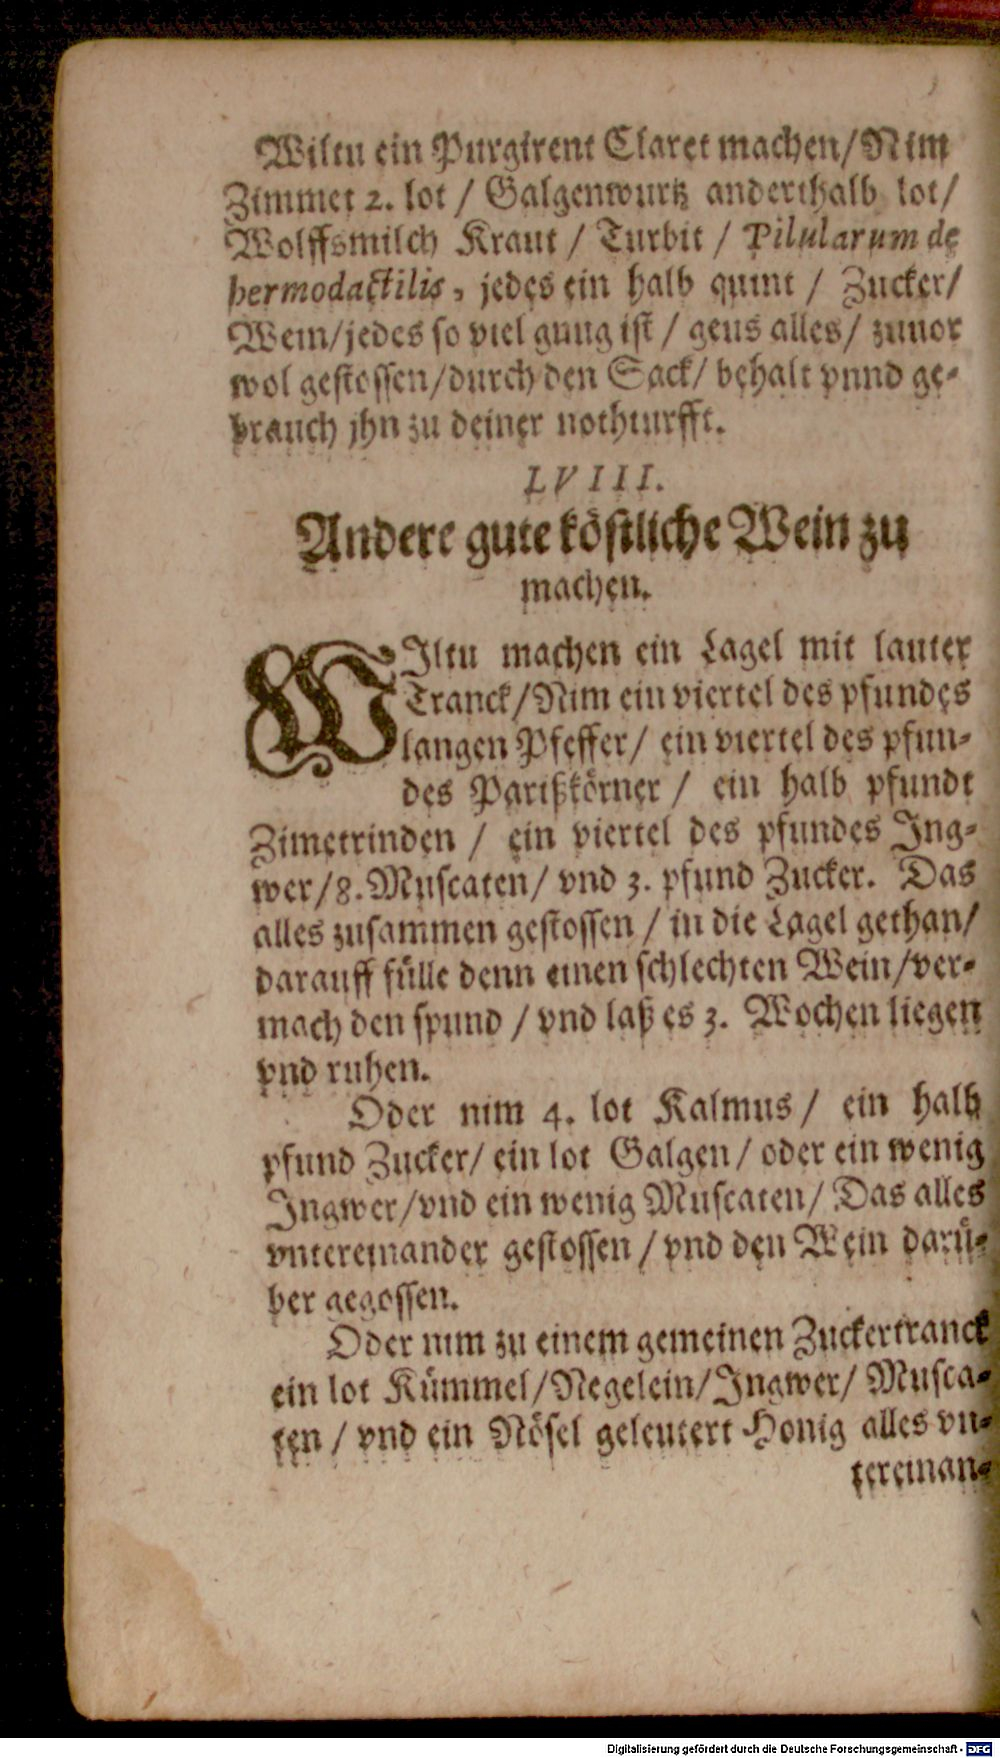 Wiltu ein Purgirent Claret machen/ Nim
Zimmet 2. lot / Galgenwurtz anderthalb lot/
Wolffsmilch Kraut / Turbit / Pilularum de
hermodactilis, jedes ein halb quint / Zucker/
Wein/jedes so viel gnug ist / geus alles/ zuuor
wol gestossen/durch den Sack/ behalt vnnd ge-
brauch jhn zu deiner nothturfft.
LVIII.
Andere gute köstliche Wein zu
machen.
WIltu machen ein Lagel mit lauter
Tranck/Nim ein viertel des pfundes
langen Pfeffer/ ein viertel des pfun-
des Parißkörner / ein halb pfundt
Zimetrinden / ein viertel des pfundes Ing-
wer/8. Muscaten/ vnd 3. pfund Zucker. Das
alles zusammen gestossen / in die Lagel gethan/
darauff fülle denn einen schlechten Wein/ver-
mach den spund / vnd laß es 3. Wochen liegen
vnd ruhen.
Oder nim 4. lot Kalmus/ ein halb
pfund Zucker/ ein lot Galgen/ oder ein wenig
Ingwer/vnd ein wenig Muscaten/ Das alles
vntereinander gestossen / vnd den Wein darü-
ber gegossen.
Oder nim zu einem gemeinen Zuckertranck
ein lot Kümmel/Negelein/Ingwer/ Musca-
ten / vnd ein Nösel geleutert Honig alles vn-
tereinan-
Digitalisierung gefördert durch die Deutsche Forschungsgemeinschaft - DFG